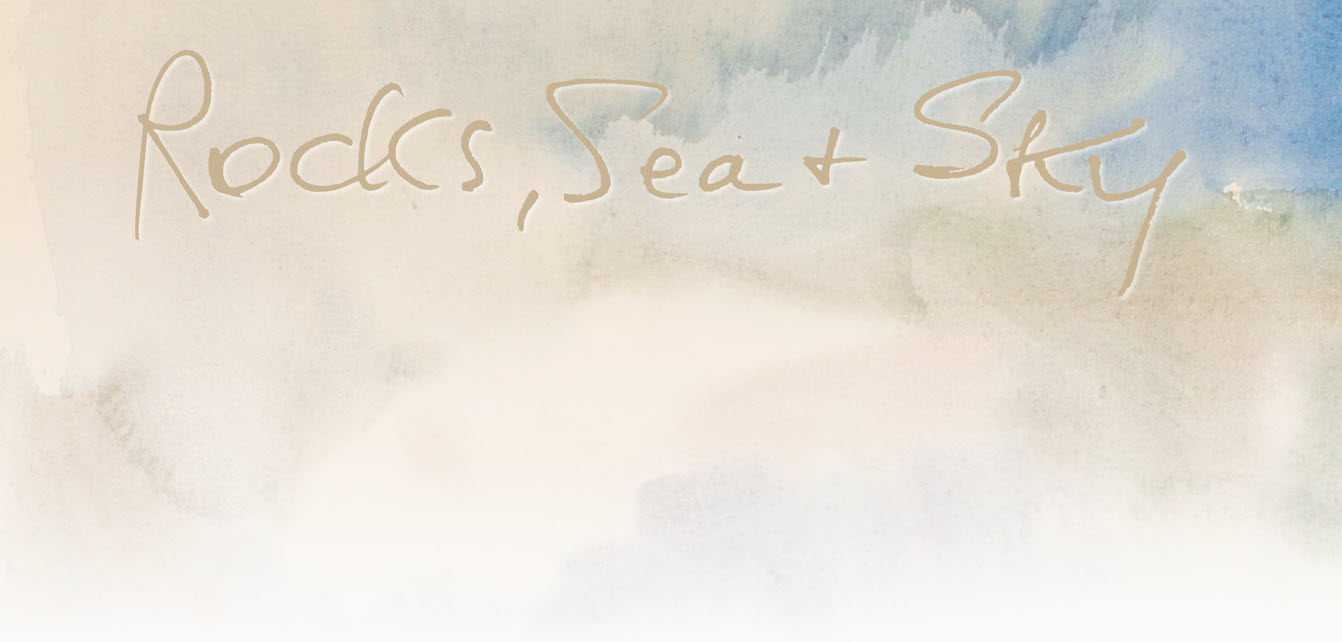 Rocks, Sea + Sky